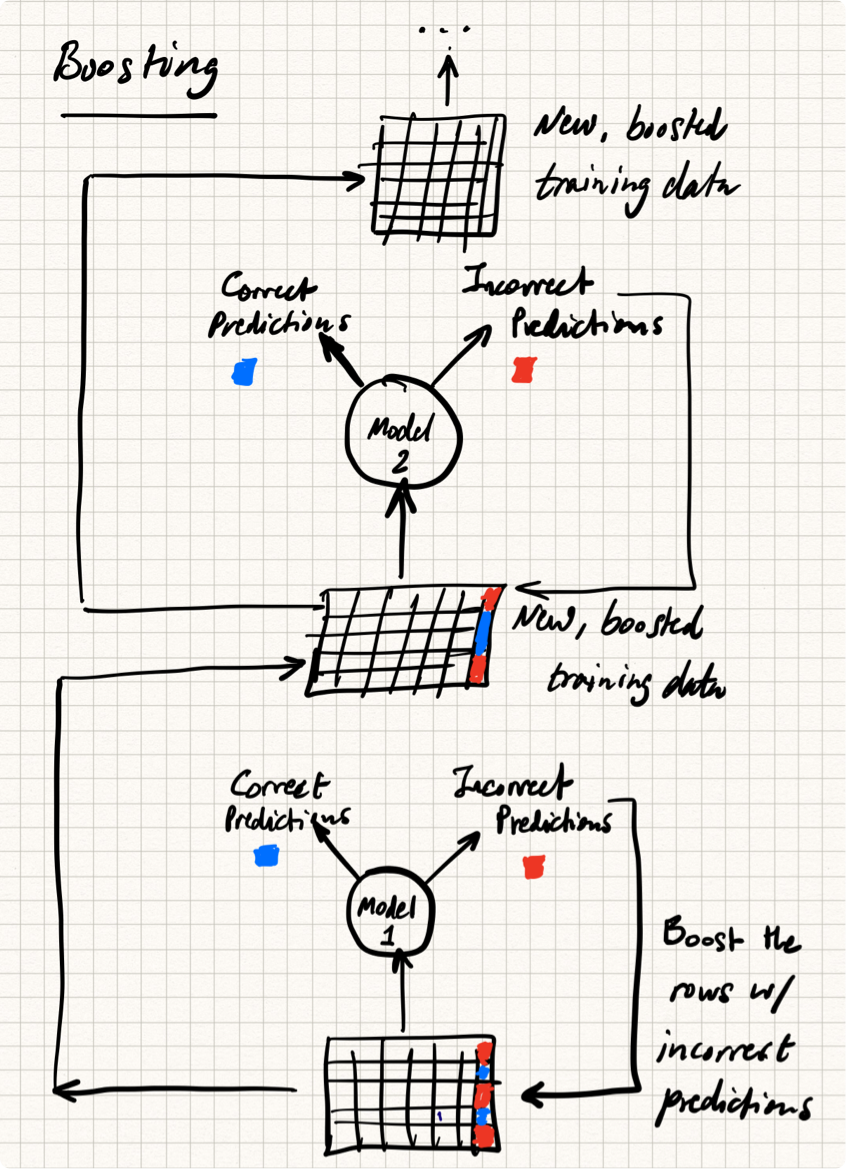 Boosting
...
New, boosted
training data
Correct
Predictions
Incorrect
Predictions
Model
2
New, boosted
training data
Correct
Predictions
Incorrect
Predictions
Model
1
Boost the
rows w/
incorrect
predictions